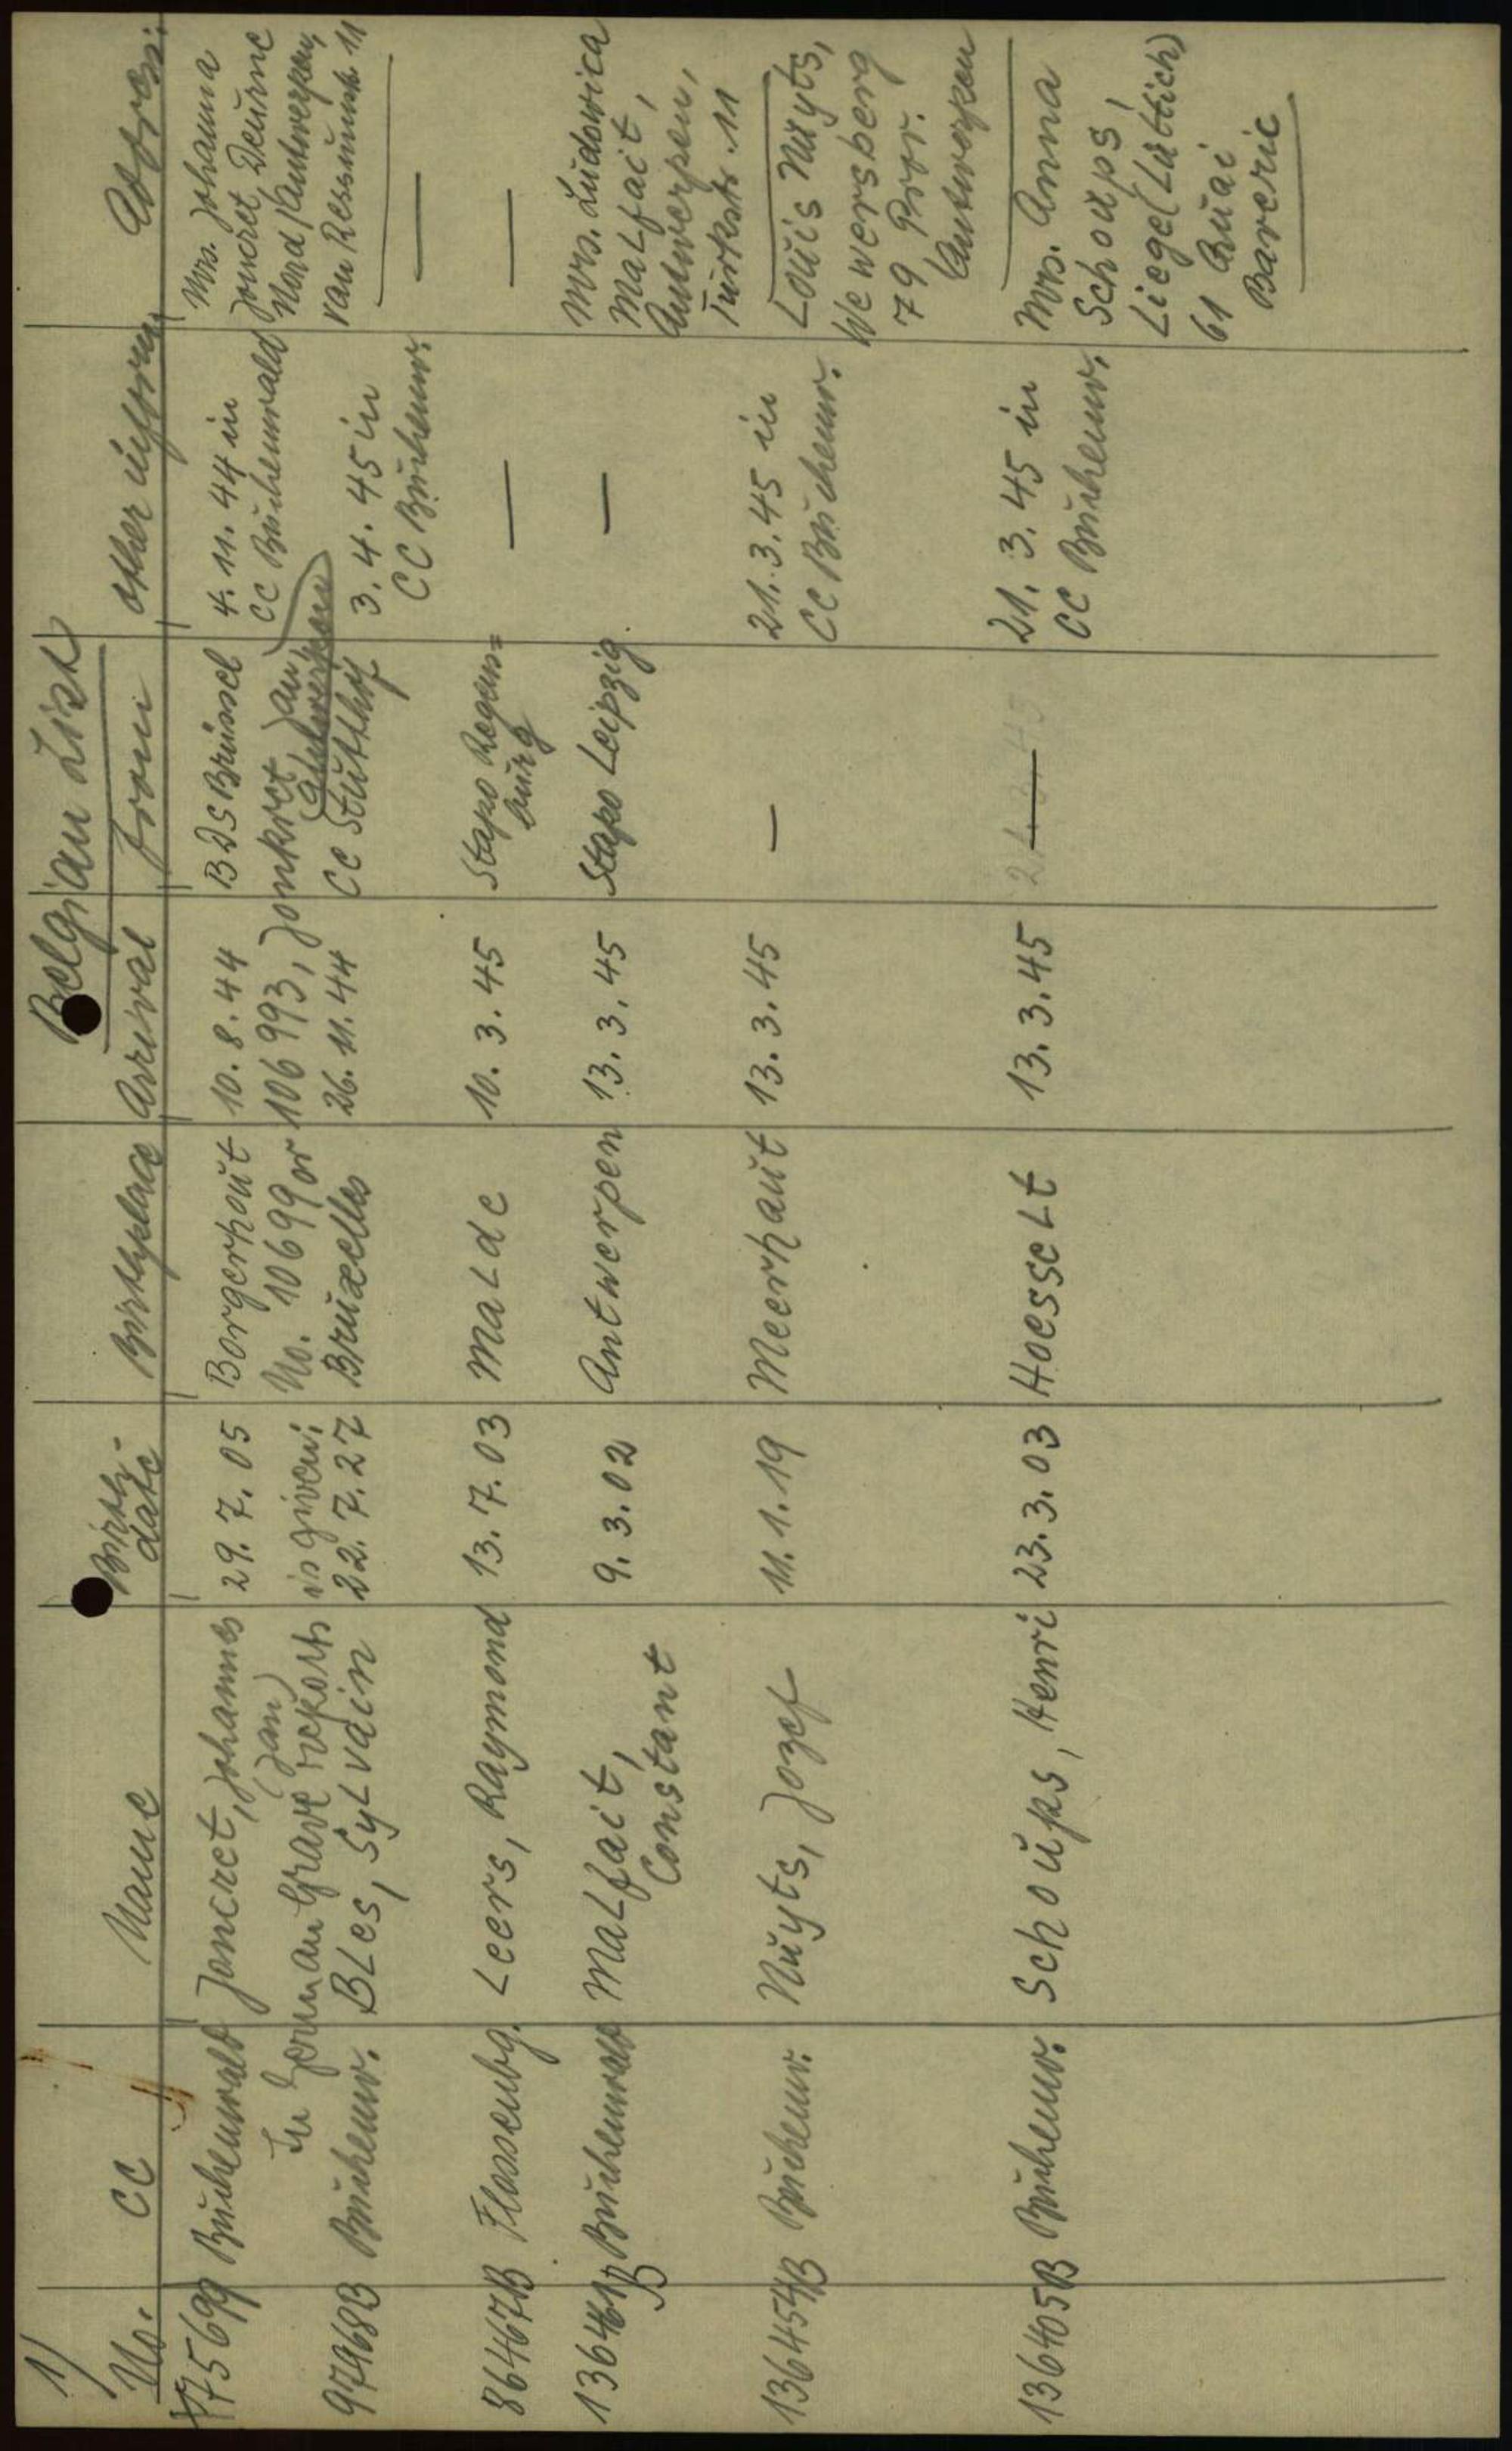 1/
Belgian List
No. CC Name Birth-date Birthplace Arrival from other inform. Address:
75699 Buchenwald Joncret, Johannes (Jan) 29.7.05 Borgerhout 10.8.44 BDS Brüssel 4.11.44 in CC Buchenwald Mrs. Johanna Joncret, Deurne Nord/Antwerpen,
In German Grave reports is given: No. 10699 or 106993, Jonkret Jan
97968B Buchenw. BLes, SyLvain 22.7.27 Bruxelles 26.11.44 CC Stutthof 3.4.45 in CC Buchenw. —
86467B Flossenbg. Leers, Raymond 13.7.03 MaLde 10.3.45 Stapo Regens=burg — —
Buchenwald MaLfait, Constant 9.3.02 Antwerpen 13.3.45 Stapo Leipzig — Mrs. Ludowica MaLfait, Antwerpen,
136454B Buchenw. Nuÿts, Jozef 11.1.19 Meerhaut 13.3.45 — 21.3.45 in CC Buchenw. Louis Nuyts, Wewersberg 79 Prov. Antwerpen
136405B Buchenw. Schoups, Henri 23.3.03 HoesseLt 13.3.45 — 21.3.45 in CC Buchenw. Mrs. Anna Schoups, Liege (Lüttich) 61 Quai Baveric